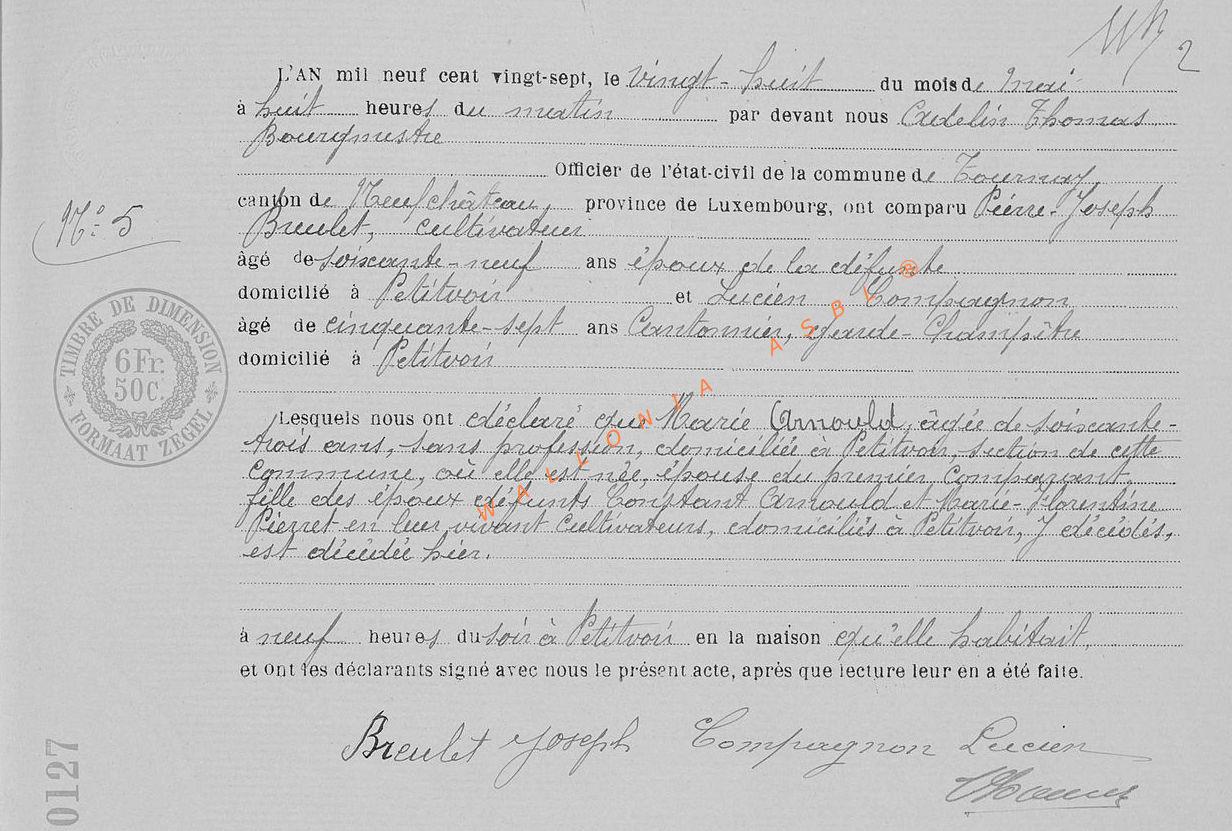 2
L'AN mil neuf cent vingt-sept, le vingt-huit du mois de Mai
à huit heures du matin par devant nous Cadelin Thomas
Bourgmestre
Officier de l'état-civil de la commune de Tournay
canton de Neufchâteau, province de Luxembourg, ont comparu Pierre-Joseph
Breulet, cultivateur
âgé de soixante-neuf ans époux de la défunte
domicilié à Petitvoir et Lucien Compagnon
âgé de cinquante-sept ans Cantonnier, garde-Champêtre
domicilié à Petitvoir
Lesquels nous ont déclaré que Marie Arnould, âgée de soixante-
trois ans, sans profession, domiciliée à Petitvoir, section de cette
Commune, où elle est née, épouse du premier Comparant,
fille des époux défunts Constant Arnould et Marie-Florentine
Pierret en leur vivant Cultivateurs, domiciliés à Petitvoir, y décédés,
est décédée hier.
à neuf heures du soir à Petitvoir en la maison qu'elle habitait,
et ont les déclarants signé avec nous le présent acte, après que lecture leur en a été faite.
Breulet Joseph Compagnon Lucien
Thomas
N° 5
TIMBRE DE DIMENSION
6 Fr.
50 C.
FORMAAT ZEGEL
0127
WALLONIA ASBL ®